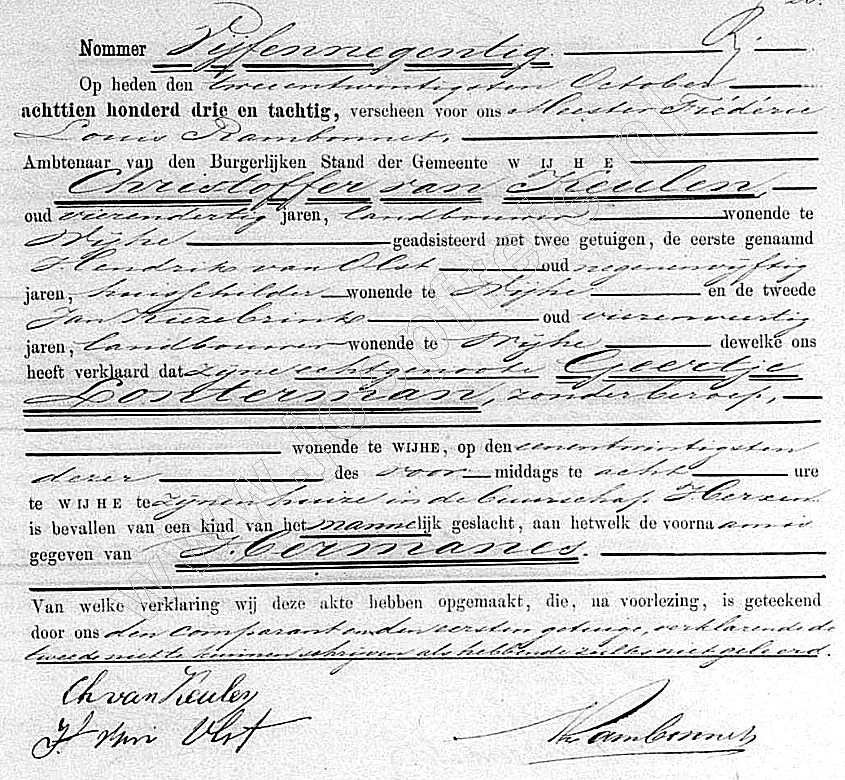 Nommer Vijfennegentig.
Op heden den tweeentwintigsten October
achttien honderd drie en tachtig, verscheen voor ons Meester Fréderic
Louis Rambonnet,
Ambtenaar van den Burgerlijken Stand der Gemeente WIJHE
Christoffer van Keulen,
oud vierendertig jaren, landbouwer wonende te
Wijhe geadsisteerd met twee getuigen, de eerste genaamd
Hendrik van Olst oud negenenvijftig
jaren, huisschilder wonende te Wijhe en de tweede
Jan Kiezebrink oud vierenveertig
jaren, landbouwer wonende te Wijhe dewelke ons
heeft verklaard dat zijne echtgenoote Geertje
Lonterman, zonder beroep,
wonende te WIJHE, op den eenentwintigsten
dezer des voor middags te acht ure
te WIJHE te zijnen huize in de buurschap Herxen
is bevallen van een kind van het mannelijk geslacht, aan hetwelk de voornaam is
gegeven van Hermanes.
Van welke verklaring wij deze akte hebben opgemaakt, die, na voorlezing, is geteekend
door ons den comparant en den eersten getuige, verklarende de
tweede niet te kunnen schrijven als hebbende zulks niet geleerd.
Ch van Keulen
H van Olst
Rambonnet